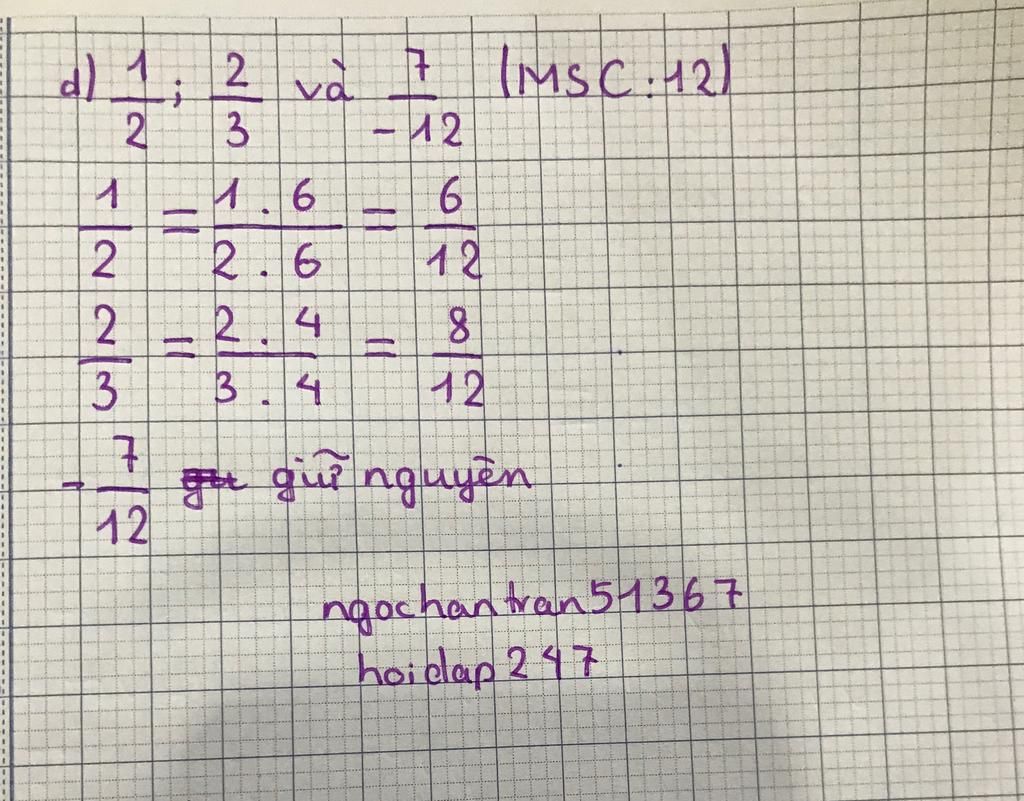 d) 1/2 ; 2/3 và 7/-12 (MSC: 12)
1/2 = 1 . 6/2 . 6 = 6/12
2/3 = 2 . 4/3 . 4 = 8/12
- 7/12 giữ nguyên
ngochantran51367
hoidap247